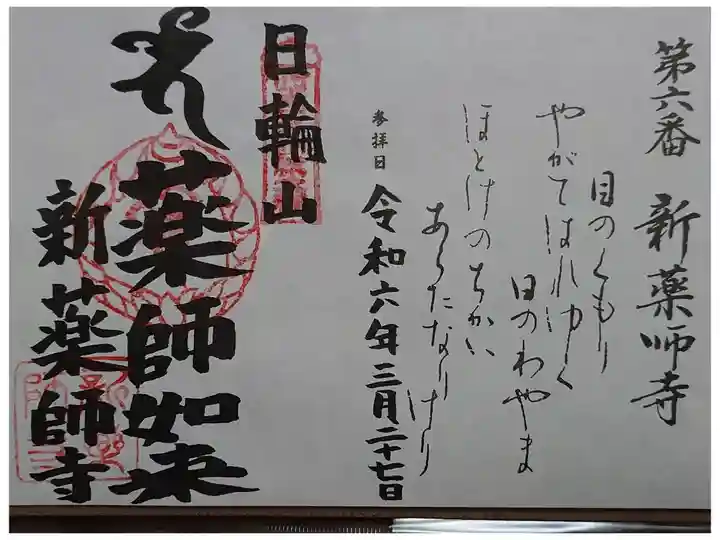 第六番 新薬師寺
目のくもり
やがてはれゆく
日のわやま
ほとけのちかい
あらたなりけり
参拝日 令和六年三月二十七日
日輪山
薬師如来
新薬師寺